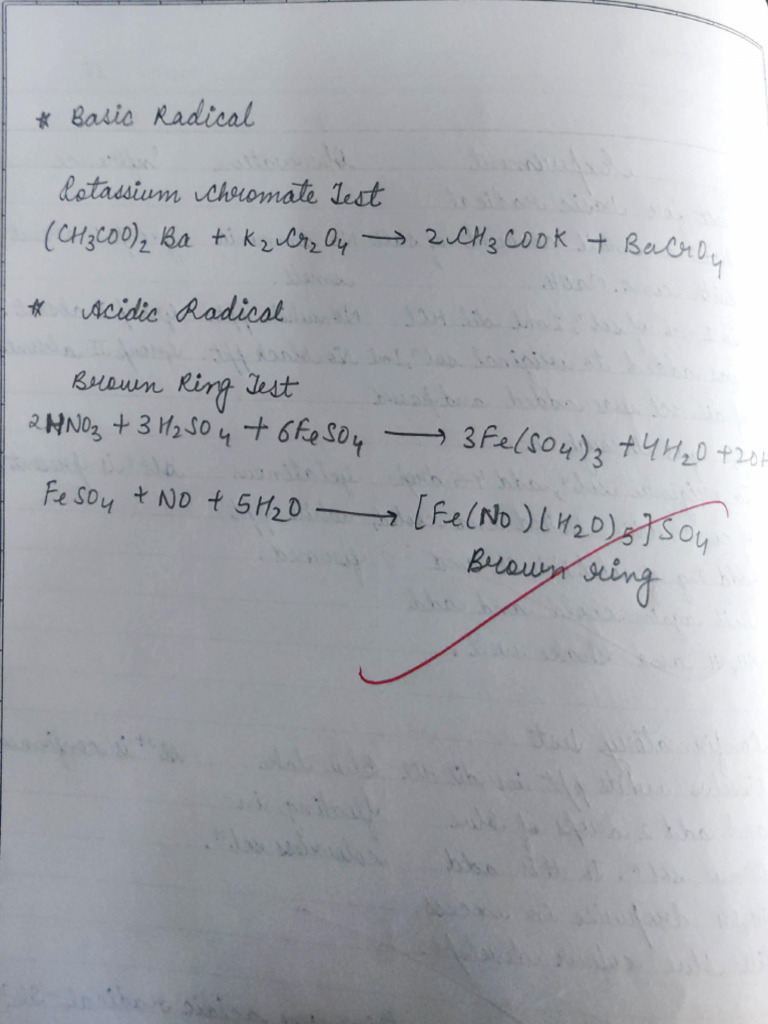 * Basic Radical
Potassium Chromate Test
(CH3COO)2 Ba + K2Cr2O4 → 2CH3COOK + BaCrO4
* Acidic Radical
Brown Ring Test
2HNO3 + 3H2SO4 + 6FeSO4 → 3Fe(SO4)3 + 4H2O +
FeSO4 + NO + 5H2O → [Fe(NO)(H2O)5]SO4
Brown ring